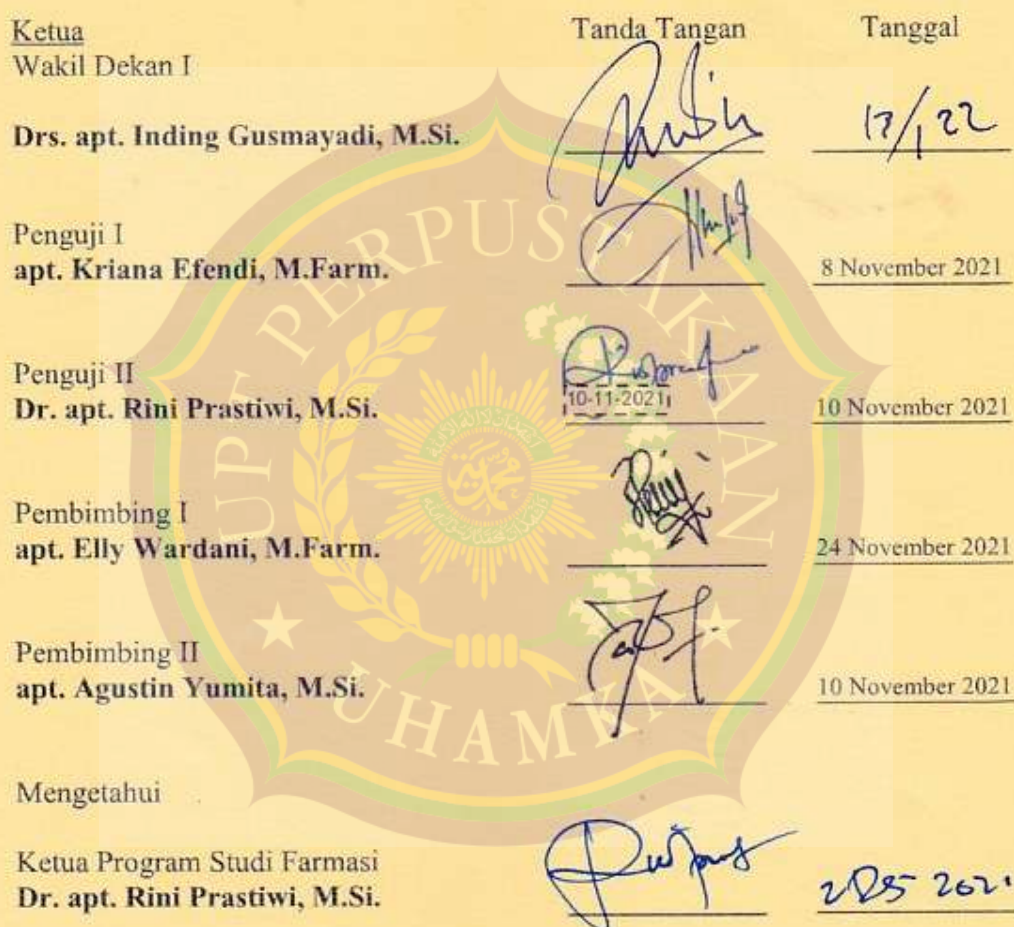 Ketua Tanda Tangan Tanggal
Wakil Dekan I
Drs. apt. Inding Gusmayadi, M.Si. 13/1 22
Penguji I
apt. Kriana Efendi, M.Farm. 8 November 2021
Penguji II
10-11-2021
Dr. apt. Rini Prastiwi, M.Si. 10 November 2021
Pembimbing I
apt. Elly Wardani, M.Farm. 24 November 2021
Pembimbing II
apt. Agustin Yumita, M.Si. 10 November 2021
Mengetahui
Ketua Program Studi Farmasi
Dr. apt. Rini Prastiwi, M.Si. 2021
UPT PERPUSTAKAAN
UHAMKA